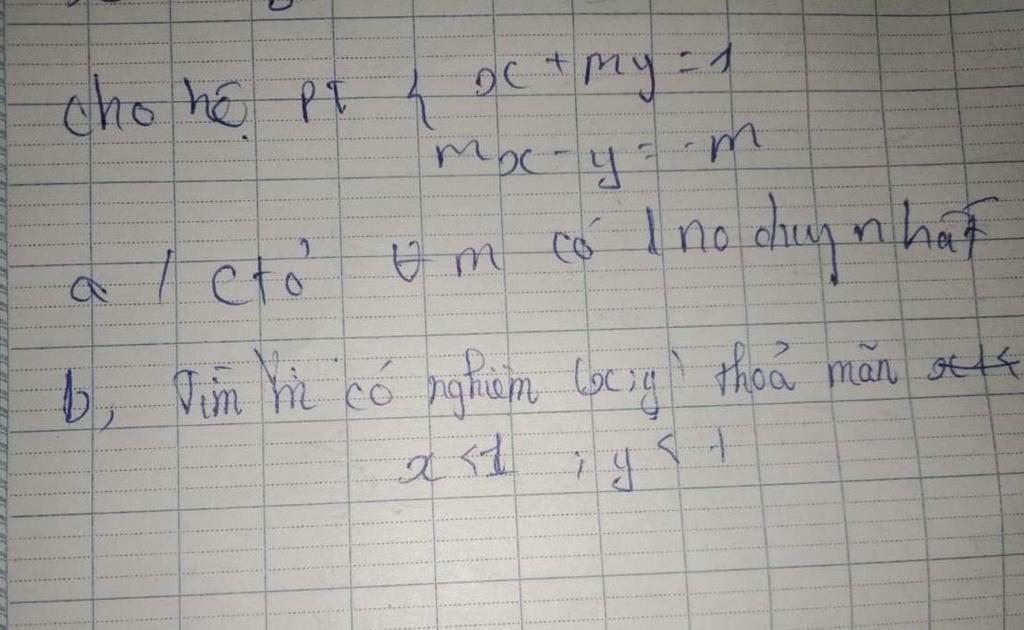 cho hệ PT { x + my = 1
mx - y = -m
a / ctỏ ∀ m có 1 no duy nhất
b, Tìm m có nghiệm (x;y) thoả mãn
x < 1 ; y < 1